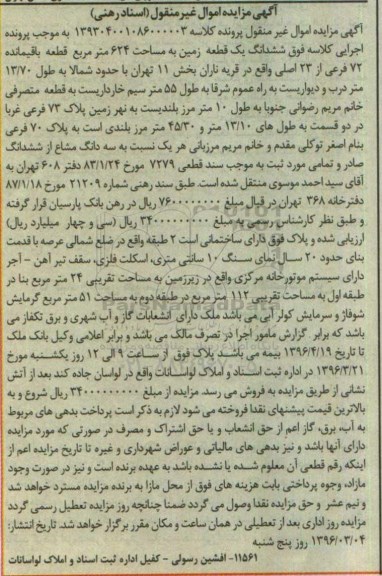 آگهی مزایده اموال غیر منقول (اسناد رهنی)
آگهی مزایده اموال غیر منقول پرونده کلاسه ۱۳۹۳۰۴۰۰۱۰۸۶۰۰۰۰۰۳ به موجب پرونده
اجرایی کلاسه فوق ششدانگ یک قطعه زمین به مساحت ۶۲۴ متر مربع قطعه باقیمانده
۷۲ فرعی از ۲۳ اصلی واقع در قریه ناران بخش ۱۱ تهران با حدود شمالا به طول ۱۳/۷۰
متر درب و دیواریست به راه عموم شرقا به طول ۵۵ متر سیم خارداریست به قطعه متصرفی
خانم مریم رضوانی جنوبا به طول ۱۰ متر مرز بلندیست به نهر زمین پلاک ۷۳ فرعی غربا
در دو قسمت به طول های ۱۳/۱۰ متر و ۴۵/۳۰ متر مرز بلندی است به پلاک ۷۰ فرعی
بنام اصغر توکلی مقدم و خانم مریم مرزبانی هر یک نسبت به سه دانگ مشاع از ششدانگ
صادر و تمامی مورد ثبت به موجب سند قطعی ۷۲۷۹ مورخ ۸۳/۱/۲۴ دفتر ۶۰۸ تهران به
آقای سید احمد موسوی منتقل شده است. طبق سند رهنی شماره ۲۱۲۰۹ مورخ ۸۷/۱/۱۸
دفترخانه ۳۶۸ تهران در قبال مبلغ ۷۶۰۰۰۰۰۰۰۰ ریال در رهن بانک پارسیان قرار گرفته
و طبق نظر کارشناس رسمی به مبلغ ۳۴۰۰۰۰۰۰۰۰۰ ریال (سی و چهار میلیارد ریال)
ارزیابی شده و پلاک فوق دارای ساختمانی است ۲ طبقه واقع در ضلع شمالی عرصه با قدمت
بنای حدود ۲۰ سال نمای سنگ ۱۰ سانتی متری، اسکلت فلزی، سقف تیر آهن - آجر
دارای سیستم موتورخانه مرکزی واقع در زیرزمین به مساحت تقریبی ۲۴ متر مربع بنا در
طبقه اول به مساحت تقریبی ۱۱۲ متر مربع در طبقه دوم به مساحت ۵۱ متر مربع گرمایش
شوفاژ و سرمایش کولر آبی می باشد ملک دارای انشعابات گاز و آب شهری و برق تکفاز می
باشد که برابر گزارش مامور اجرا در تصرف مالک می باشد و برابر اعلامی وکیل بانک ملک
تا تاریخ ۱۳۹۶/۴/۱۹ بیمه می باشد پلاک فوق از ساعت ۹ الی ۱۲ روز یکشنبه مورخ
۱۳۹۶/۳/۲۱ در اداره ثبت اسناد و املاک لواسانات واقع در لواسان جاده کند بعد از آتش
نشانی از طریق مزایده به فروش می رسد. مزایده از مبلغ ۳۴۰۰۰۰۰۰۰۰۰ ریال شروع و به
بالاترین قیمت پیشنهای نقدا فروخته می شود لازم به ذکر است پرداخت بدهی های مربوط
به آب، برق، گاز اعم از حق انشعاب و یا حق اشتراک و مصرف در صورتی که مورد مزایده
دارای آنها باشد و نیز بدهی های مالیاتی و عوارض شهرداری و غیره تا تاریخ مزایده اعم از
اینکه رقم قطعی آن معلوم شده یا نشده باشد به عهده برنده است و نیز در صورت وجود
مازاد، وجوه پرداختی بابت هزینه های فوق از محل مازا به برنده مزایده مسترد خواهد شد
و نیم عشر و حق مزایده نقدا وصول می گردد ضمنا چنانچه روز مزایده تعطیل رسمی گردد
مزایده روز اداری بعد از تعطیلی در همان ساعت و مکان مقرر برگزار خواهد شد. تاریخ انتشار:
۱۳۹۶/۰۳/۰۴ روز پنج شنبه
۱۱۵۶۱- افشین رسولی - کفیل اداره ثبت اسناد و املاک لواسانات